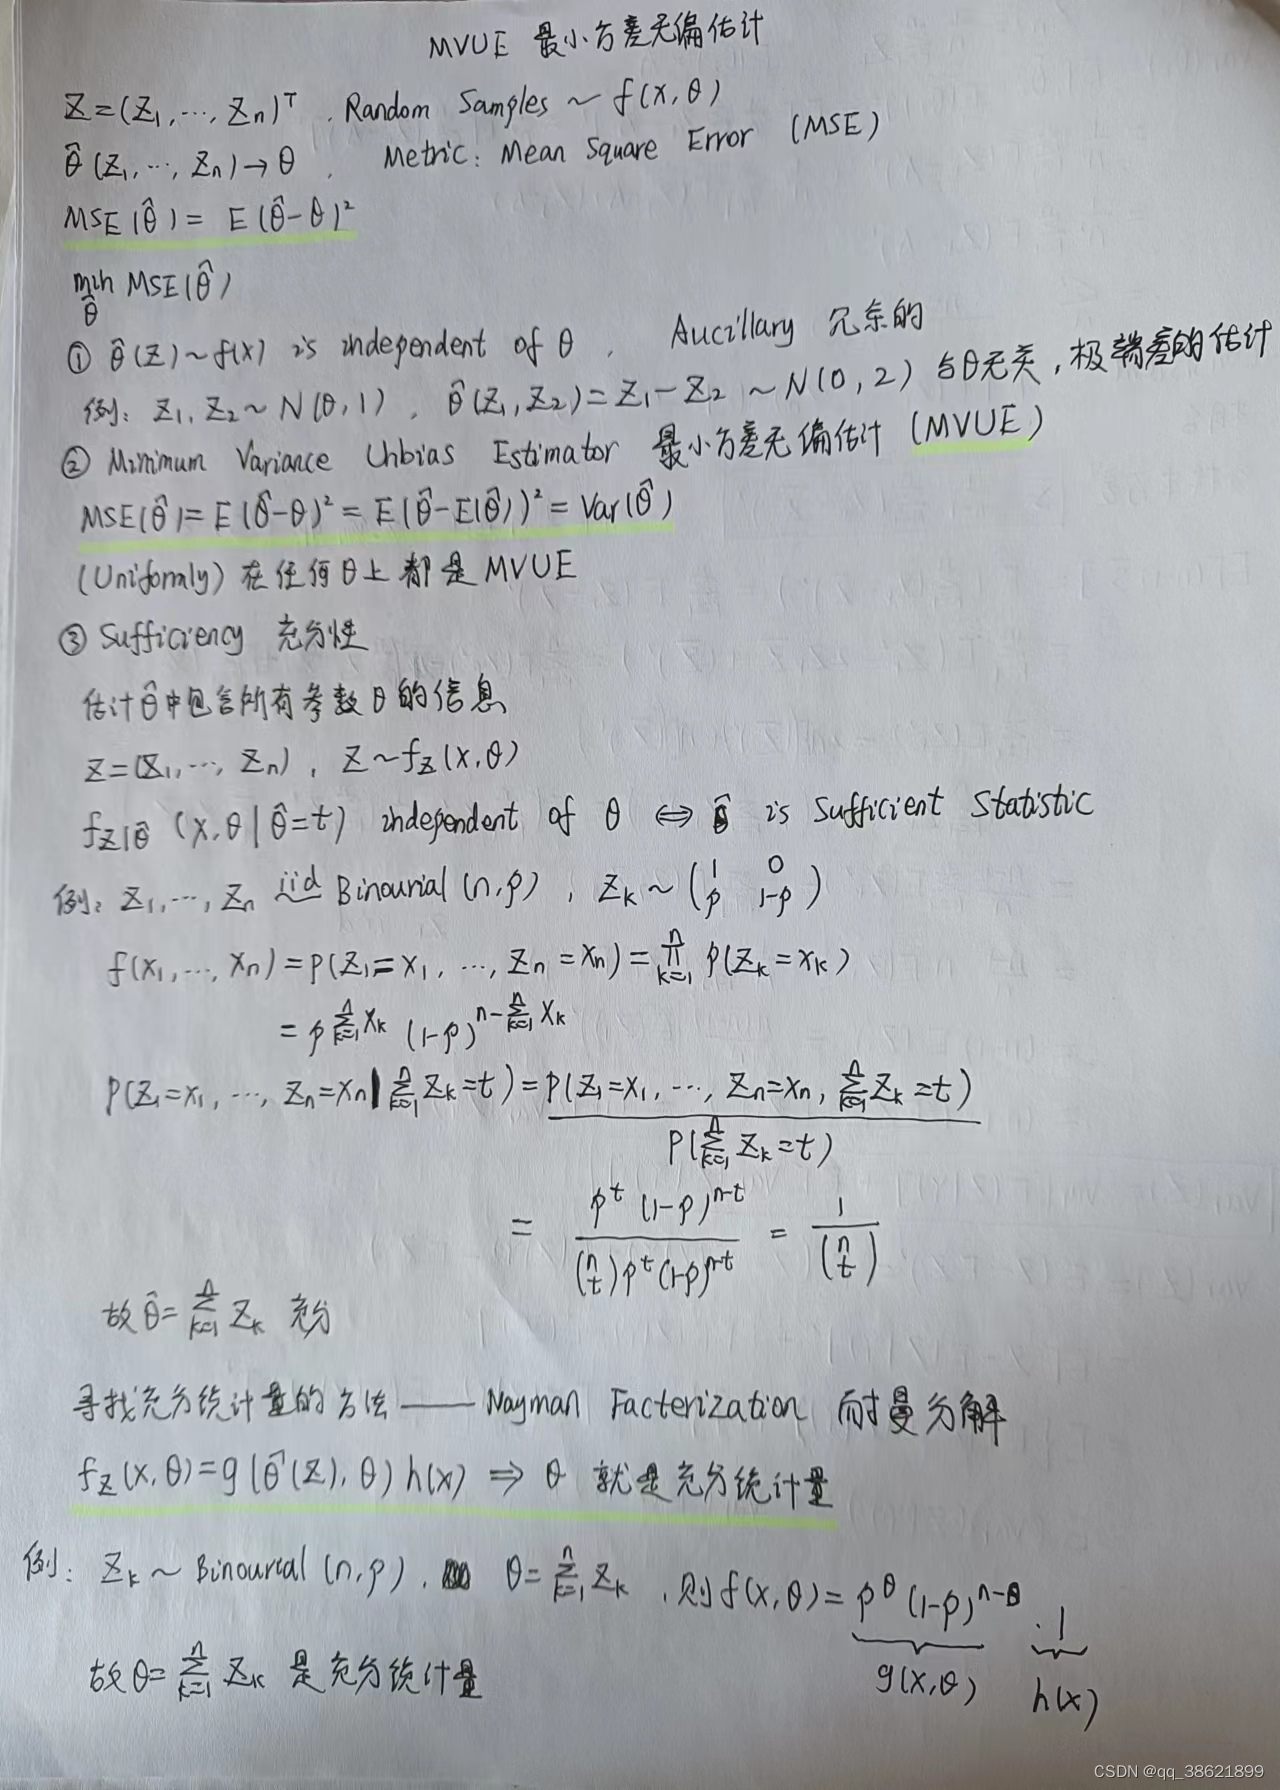 MVUE 最小方差无偏估计
Z=(Z₁,⋯,Zₙ)ᵀ. Random Samples ~ f(x,θ)
θ̂(Z₁,⋯,Zₙ)→θ. Metric: Mean Square Error (MSE)
MSE(θ̂)= E(θ̂-θ)²
min MSE(θ̂)
θ̂
① θ̂(Z)~f(x) is independent of θ. Aucillary 冗余的
例: Z₁,Z₂~N(θ,1). θ̂(Z₁,Z₂)=Z₁-Z₂ ~N(0,2)与θ无关,极端差的估计
② Minimum Variance Unbias Estimator 最小方差无偏估计(MVUE)
MSE(θ̂)=E(θ̂-θ)²=E(θ̂-E(θ̂))²=Var(θ̂)
(Uniformly)在任何θ上都是MVUE
③ Sufficiency 充分性
估计θ̂中包含所有参数θ的信息
Z=(Z₁,⋯,Zₙ), Z~f_Z(x,θ)
f_{Z|θ̂}(x,θ|θ̂=t) independent of θ ⇔ θ̂ is Sufficient Statistic
例: Z₁,⋯,Zₙ iid Binourial(n,p), Z_k~(1 0
p 1-p)
f(x₁,⋯,xₙ)=p(Z₁=x₁,⋯,Zₙ=xₙ)=∏_{k=1}^{n} p(Z_k=x_k)
=p^{∑_{k=1}^{n}x_k}(1-p)^{n-∑_{k=1}^{n}x_k}
P(Z₁=x₁,⋯,Zₙ=xₙ|∑_{k=1}^{n}Z_k=t)=P(Z₁=x₁,⋯,Zₙ=xₙ,∑_{k=1}^{n}Z_k=t)
P(∑_{k=1}^{n}Z_k=t)
= p^t(1-p)^{n-t} / (n t)p^t(1-p)^{n-t} = 1/(n t)
故θ̂=∑_{k=1}^{n}Z_k 充分
寻找充分统计量的方法——Nayman Facterization 耐曼分解
f_Z(x,θ)=g(θ̂(Z),θ)h(x) ⇒ θ 就是充分统计量
例: Z_k~Binourial(n,p). θ=∑_{k=1}^{n}Z_k.则f(x,θ)=p^θ(1-p)^{n-θ}·1
g(x,θ) h(x)
故θ=∑_{k=1}^{n}Z_k 是充分统计量
CSDN @qq_38621899